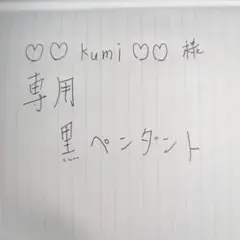 ♡♡ kumi ♡♡ 様
専用
黒ペンダント